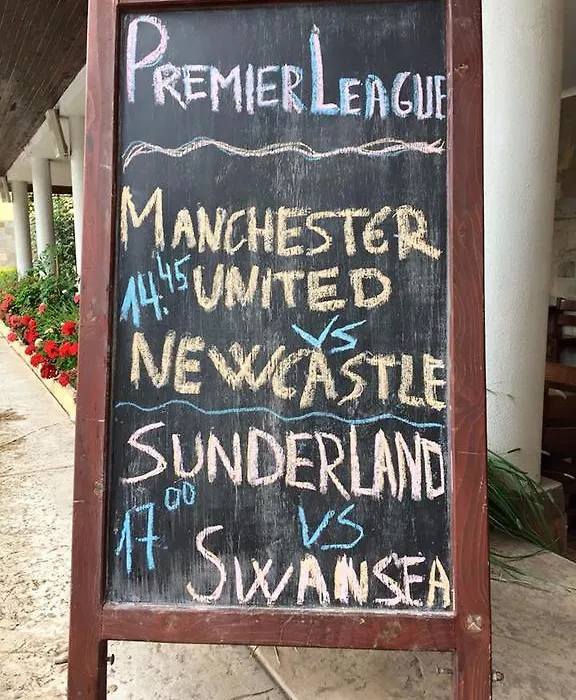 PREMIER LEAGUE
MANCHESTER
14.45 UNITED
VS
NEWCASTLE
SUNDERLAND
17 00 VS
SWANSEA